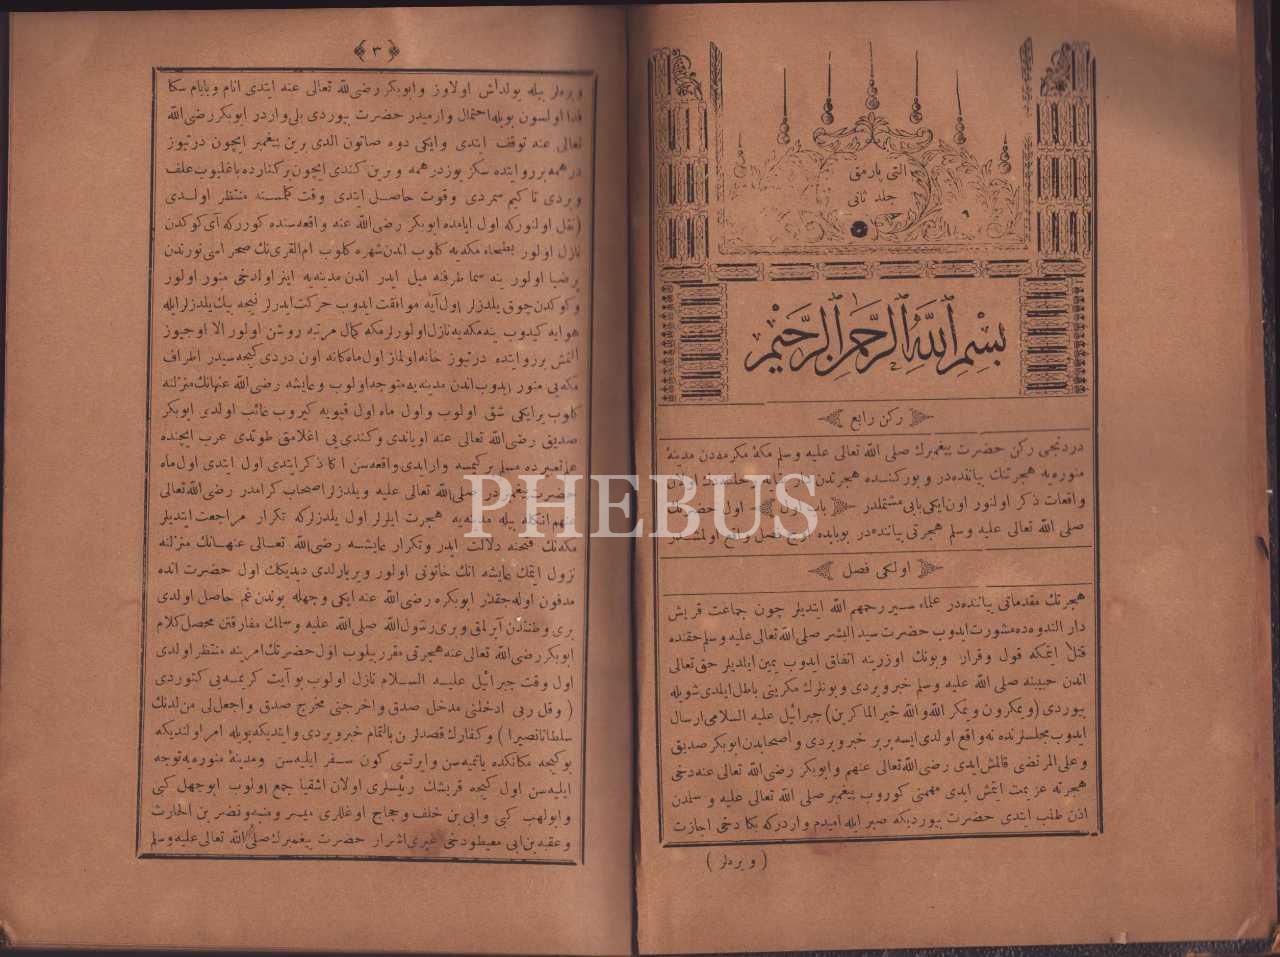 التی پارمق
جلد ثانی
بسم الله الرحمن الرحیم
رکن رابع
دردنجی رکن حضرت پیغمبرك صلی الله تعالی علیه وسلم مکهٔ مکرمه‌دن مدینهٔ
منوره‌یه هجرتنك بیاننده‌در و بورکنده هجرتدن اولان
واقعات ذکر اولنور اون‌ایکی بابی مشتملدر باب اول اول حضرتك
صلی الله تعالی علیه وسلم هجرتی بیاننده‌در بوبابده اوچ فصل واقع اولمشدر
اولکی فصل
هجرتك مقدماتی بیاننده‌در علماء سیر رحمهم الله ایتدیلر چون جماعت قریش
دار الندوه‌ده مشورت ایدوب حضرت سید البشر صلی الله تعالی علیه وسلم حقنده
قتلأ ایتمکه قول وقرار وبونك اوزرینه اتفاق ایدوب یمین ایلدیلر حق تعالی
اندن حبیبنه صلی الله علیه وسلم خبر ویردی و بونلرك مکرینی باطل ایلدی شویله
بیوردی (ویمکرون ویمکر الله والله خیر الماکرین) جبرائیل علیه السلامی ارسال
ایدوب مجلسلرنده نه واقع اولدی ایسه بربر خبر ویردی و اصحابدن ابوبکر صدیق
وعلی المرتضی قالمش ایدی رضی الله تعالی عنهم وابوبکر رضی الله تعالی عنه دخی
هجرته عزیمت ایتمش ایدی مهمنی کوروب پیغمبر صلی الله تعالی علیه وسلمدن
اذن طلب ایتدی حضرت بیوردیکه صبر ایله امیدم واردرکه بکا دخی اجازت
( ویره‌لر )
﴿ ٣ ﴾
ویره‌لر بیله یولداش اولاوز وابوبکر رضی الله تعالی عنه ایتدی انام وبابام سکا
فدا اولسون بویله احتمال وارمیدر حضرت بیوردی بلی واردر ابوبکر رضی الله
تعالی عنه توقف ایتدی وایکی دوه صاتون الدی برین پیغمبر ایچون درتیوز
درهمه بر روایتده سکز یوز درهمه وبرین کندی ایچون برکنارده باغلیوب علف
ویردی تا کیم سمردی وقوت حاصل ایتدی وقت کلمسنه منتظر اولدی
(نقل اولنورکه اول ایامده ابوبکر رضی الله عنه واقعه‌سنده کوررکه آی کوکدن
نازل اولور بطحاء مکه‌یه کلوب اندن شهره کلوب ام القری‌نك صحرامی نورندن
پرضیا اولور ینه سما طرفنه میل ایدر اندن مدینه‌یه اینر اولدخی منور اولور
وکوکدن چوق یلدزلر اول آیه موافقت ایدوب حرکت ایدرلر نیجه بیك یلدزلر ایله
هوایه کیدوب ینه مکه‌یه نازل اولورلر مکه کمال مرتبه روشن اولور الا اوچیوز
التمش بر روایتده درتیوز خانه اولماز اول ماه کانه اون دردی کیجه‌سیدر اطراف
مکه‌یی منور ایدوب اندن مدینه‌یه متوجه اولوب وعایشه رضی الله عنهانك منزلنه
کلوب یرایکی شق اولوب واول ماه اول قپویه کیروب غائب اولدی ابوبکر
صدیق رضی الله تعالی عنه اویاندی وکندی‌یی اغلامق طوتدی عرب ایچنده
علم تعبیرده مسلم برکیمسه وارایدی واقعه‌سن اکا ذکر ایتدی اول ایتدی اول ماه
حضرت پیغمبردر صلی الله تعالی علیه ویلدزلر اصحاب کرامدر رضی الله تعالی
عنهم انکله بیله مدینه‌یه هجرت ایلرلر اول یلدزلرکه تکرار مراجعت ایتدیلر
مکه‌نك فتحنه دلالت ایدر وتکرار عایشه رضی الله تعالی عنهانك منزلنه
نزول ایتمك عایشه انك خاتونی اولور ویریارلدی دیدیکك اول حضرت انده
مدفون اوله‌جقدر ابوبکره رضی الله عنه ایکی وجهله بوندن غم حاصل اولدی
بری وطنندن آیرلمق وبری رسول الله صلی الله علیه وسلمك مفارقتن محصل کلام
ابوبکر رضی الله تعالی عنه هجرتی مقرر بیلوب اول حضرتك امرینه منتظر اولدی
اول وقت جبرائیل علیه السلام نازل اولوب بو آیت کریمه‌یی کتوردی
( وقل ربی ادخلنی مدخل صدق واخرجنی مخرج صدق واجعل لی من لدنك
سلطانا نصیرا ) وکفارك قصدلرن بالتمام خبر ویردی وایتدیکه بویله امر اولندیکه
بوکیجه مکانکده یاتمیه‌سن وایرتسی کون سفر ایلیه‌سن ومدینهٔ منوره‌یه توجه
ایلیه‌سن اول کیجه قریشك رئیسلری اولان اشقیا جمع اولوب ابوجهل کبی
وابولهب کبی وابی بن خلف وحجاج اوغللری منبه ونضر بن الحارث
وعقبه بن ابی معیط ودخی غیری اشرار حضرت پیغمبرك صلی الله تعالی علیه وسلم
PHEBUS